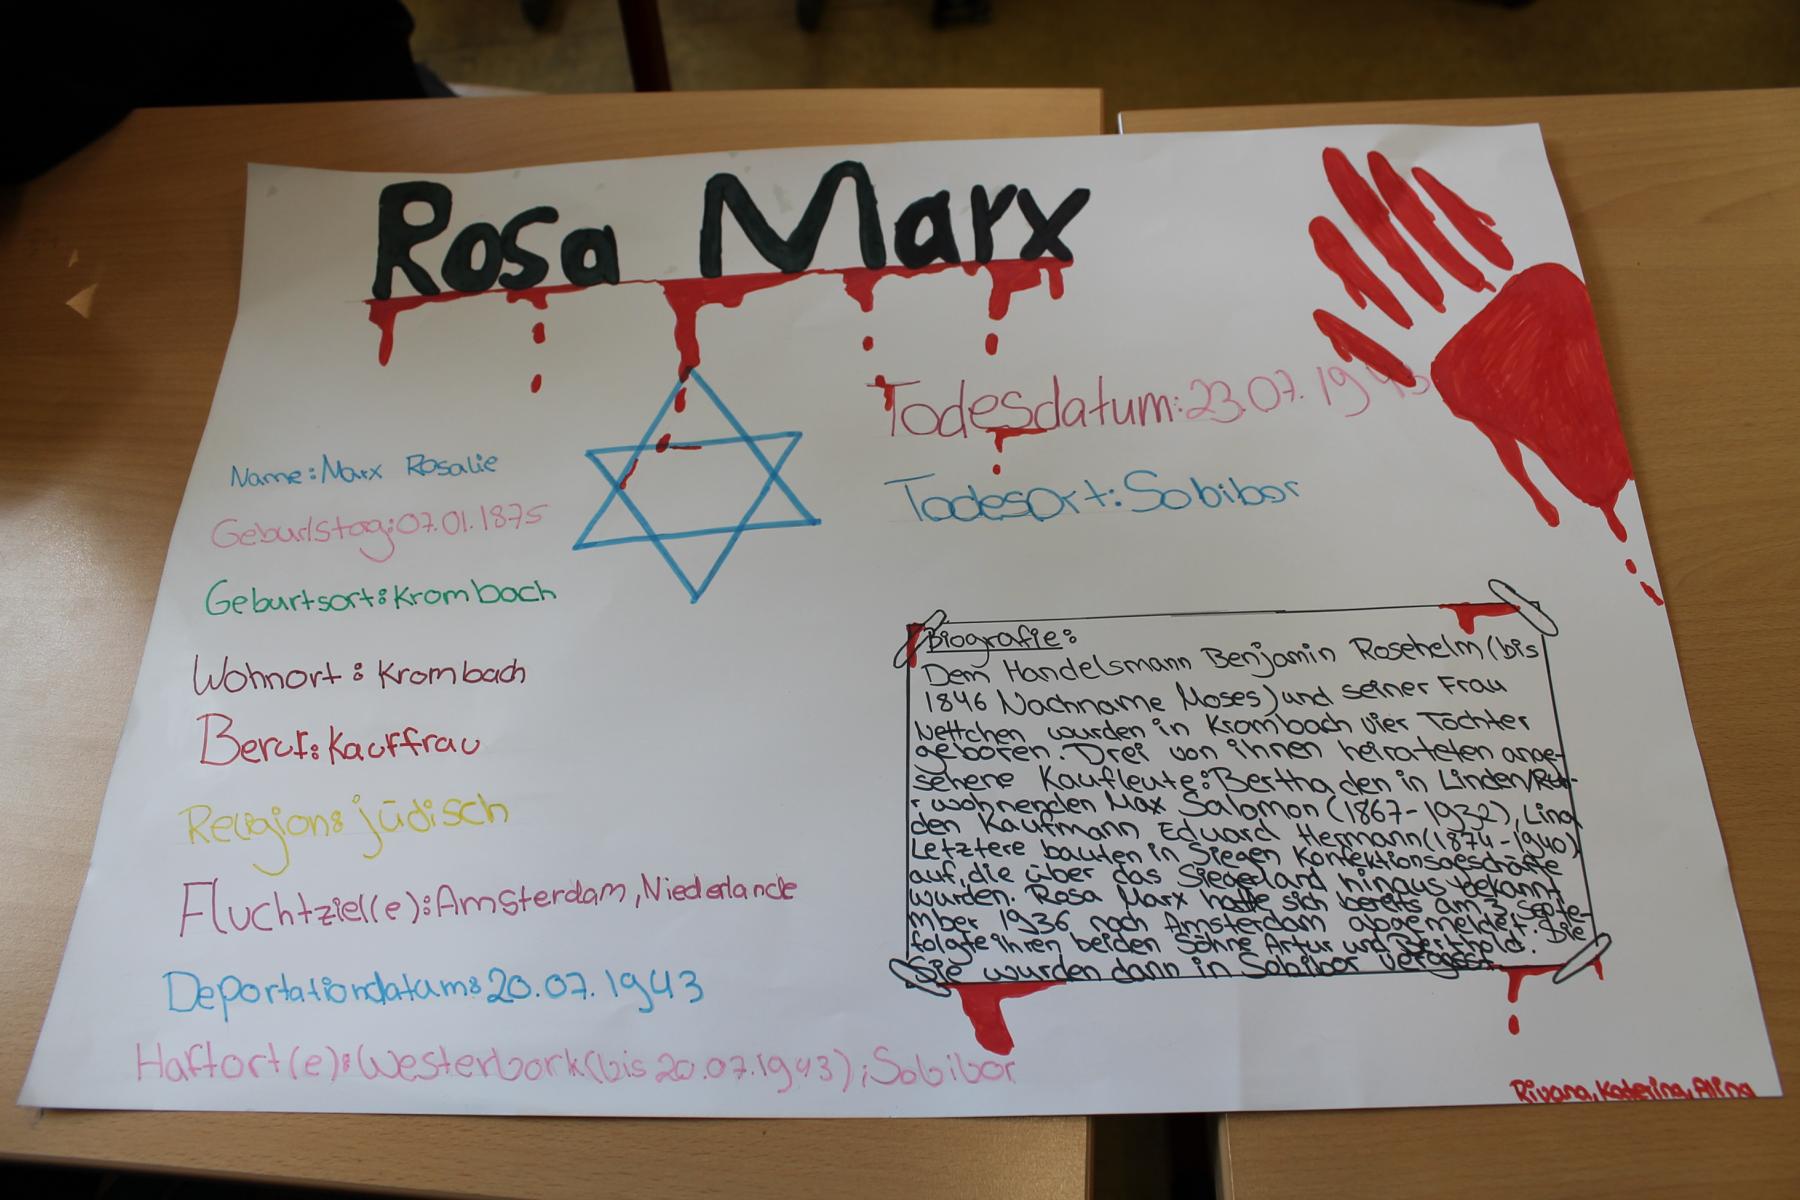 Rosa Marx
Name: Marx Rosalie
Geburdstag: 07.01.1875
Geburtsort: Krombach
Wohnort: Krombach
Beruf: Kauffrau
Religion: jüdisch
Fluchtziel(e): Amsterdam, Niederlande
Deportationdatum: 20.07.1943
Haftort(e): Westerbork (bis 20.07.1943); Sobibor
Todesdatum: 23.07.1943
Todesort: Sobibor
Biografie:
Dem Handelsmann Benjamin Rosehelm (bis
1846 Nachname Moses) und seiner Frau
Nettchen wurden in Krombach vier Töchter
geboren. Drei von ihnen heirateten ange-
sehene Kaufleute: Bertha den in Linden/Ruhr
wohnenden Max Salomon (1867-1932), Lina
den Kaufmann Eduard Hermann (1874-1940)
Letztere bauten in Siegen Konfektionsgeschäfte
auf, die über das Siegerland hinaus bekannt
wurden. Rosa Marx hatte sich bereits am 3. Septe-
mber 1936 nach Amsterdam abgemeldet. Die
folgte ihren beiden Söhne Artur und Berthold.
Sie wurden dann in Sobibor vergasst.
Rivana, Katerina, Alina